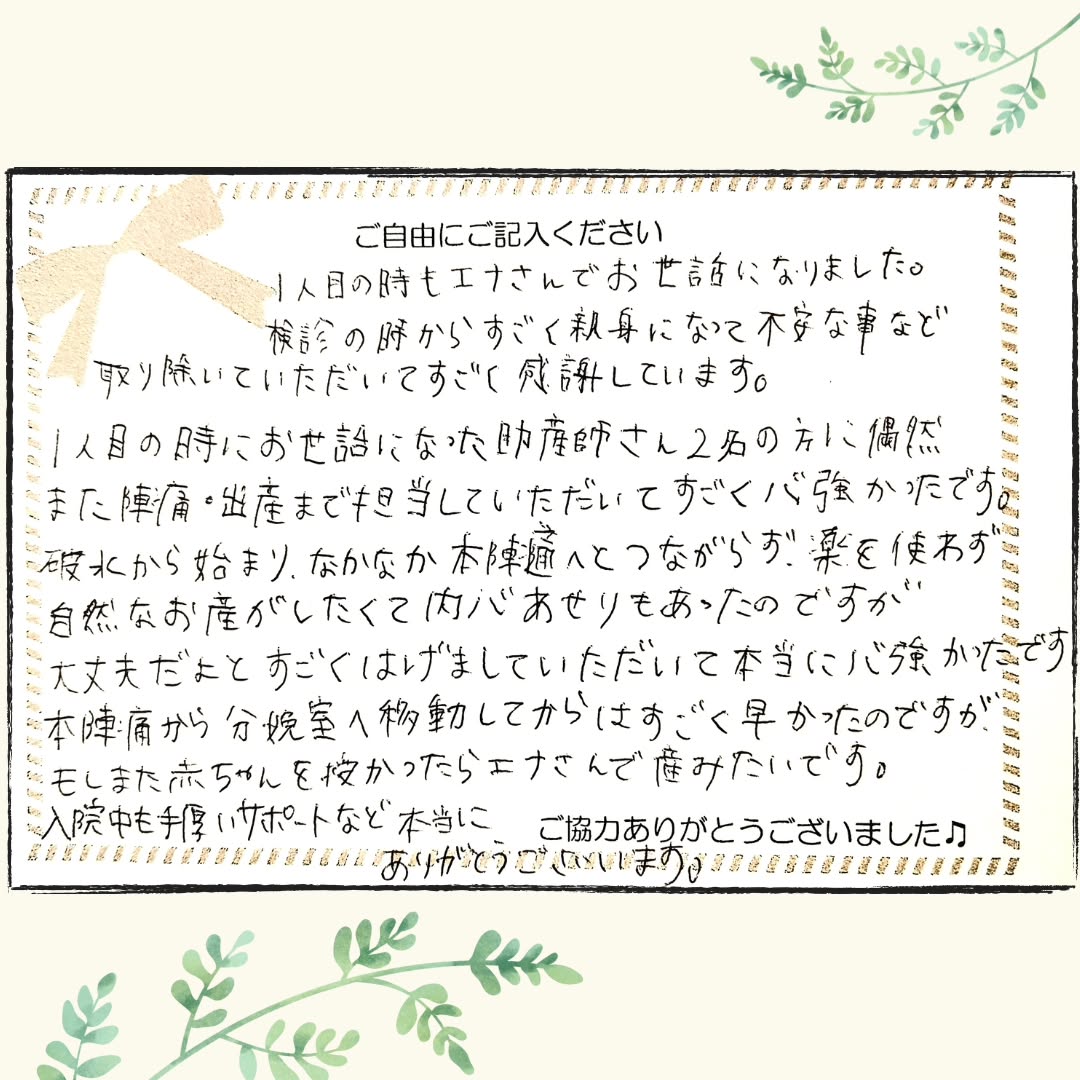 ご自由にご記入ください
1人目の時もエナさんでお世話になりました。
検診の時からすごく親身になって不安な事など
取り除いていただいてすごく感謝しています。
1人目の時にお世話になった助産師さん2名の方に偶然
また陣痛・出産まで担当していただいてすごく心強かったです。
破水から始まり、なかなか本陣痛へとつながらず、薬を使わず
自然なお産がしたくて内心あせりもあったのですが
大丈夫だよとすごくはげましていただいて本当に心強かったです
本陣痛から分娩室へ移動してからはすごく早かったのですが、
もしまた赤ちゃんを授かったらエナさんで産みたいです。
入院中も手厚いサポートなど本当に
ありがとうございます。
ご協力ありがとうございました♫